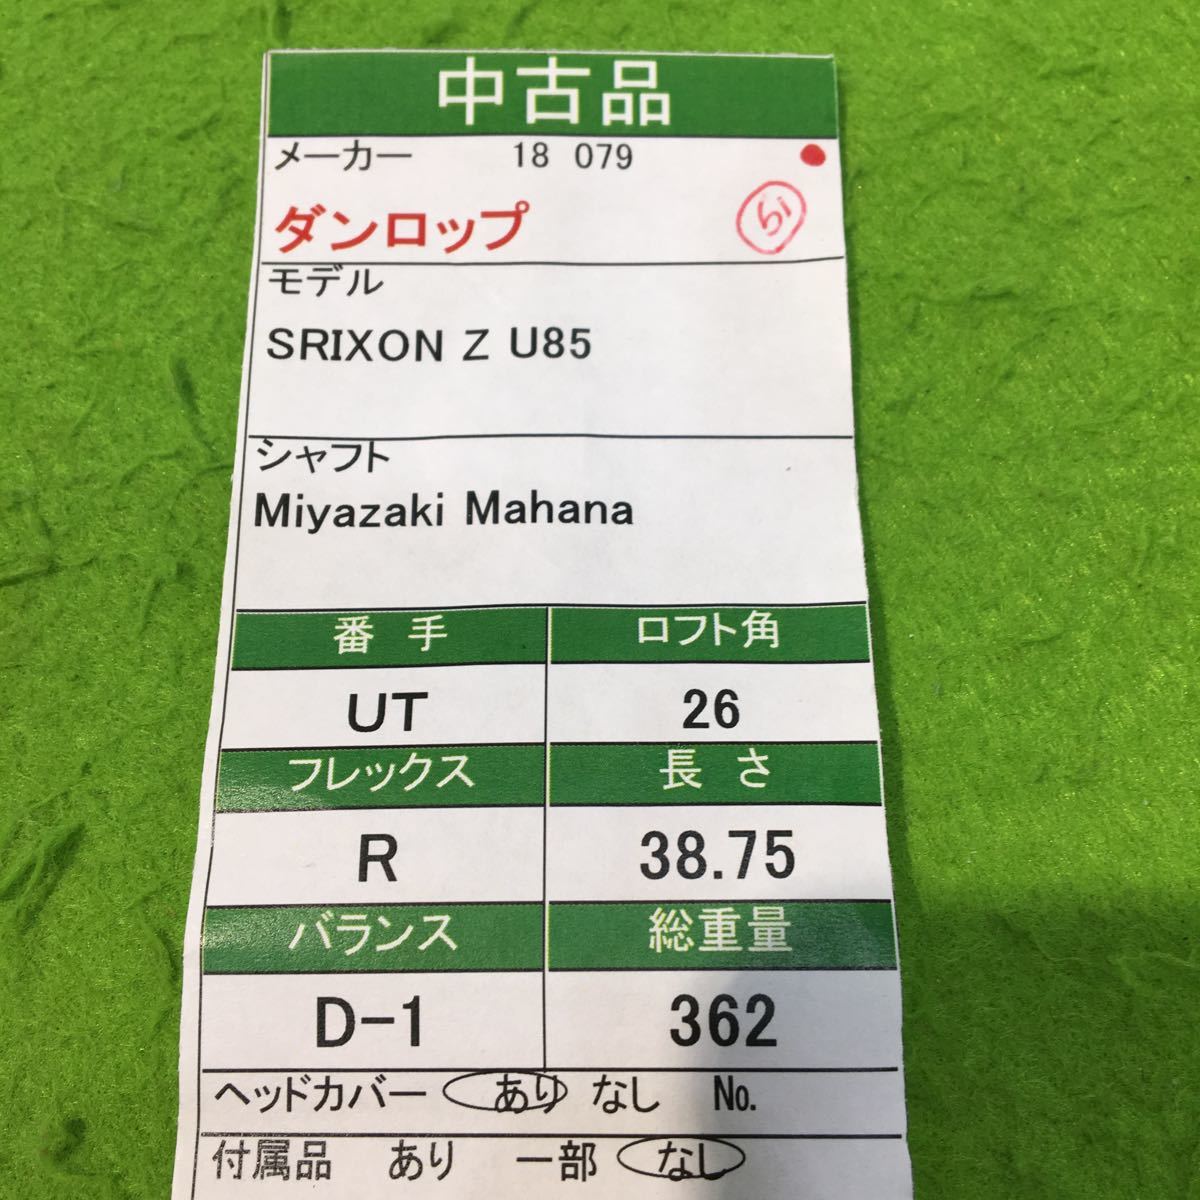 中古品
メーカー 18 079
ダンロップ
モデル
SRIXON Z U85
シャフト
Miyazaki Mahana
番手 ロフト角
UT 26
フレックス 長さ
R 38.75
バランス 総重量
D-1 362
ヘッドカバー あり なし No.
付属品 あり 一部 なし